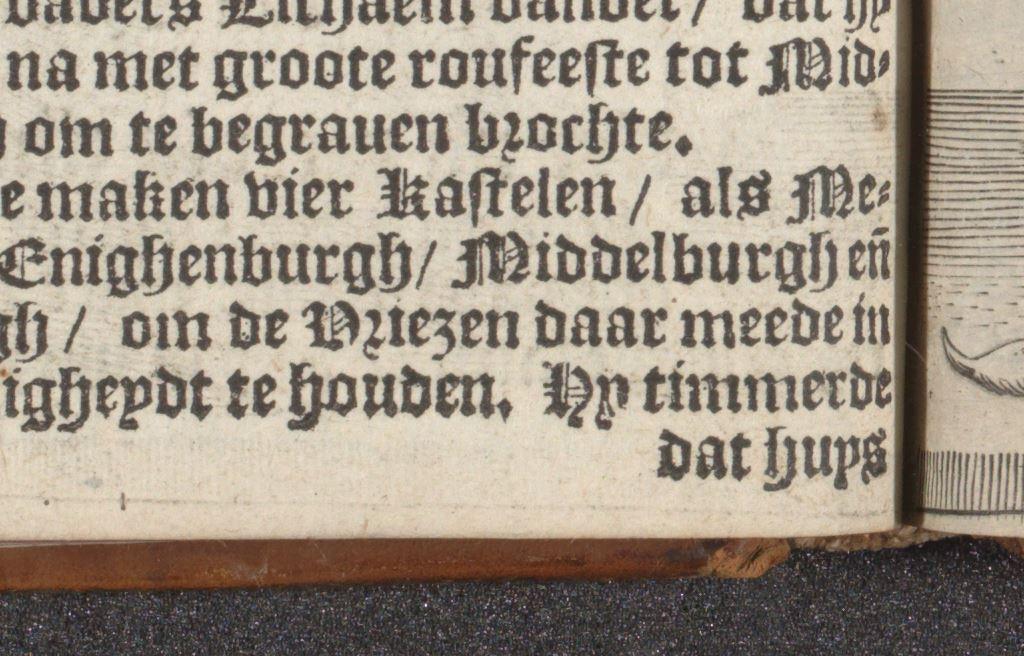 vaders Lichaem vandet / dat hy
na met groote roufeeste tot Mid⸗
om te begrauen brochte.
e maken vier Kastelen / als Me⸗
Enighenburgh / Middelburgh en̄
gh / om de Vriezen daar meede in
igheydt te houden. Hy timmerde
dat huys